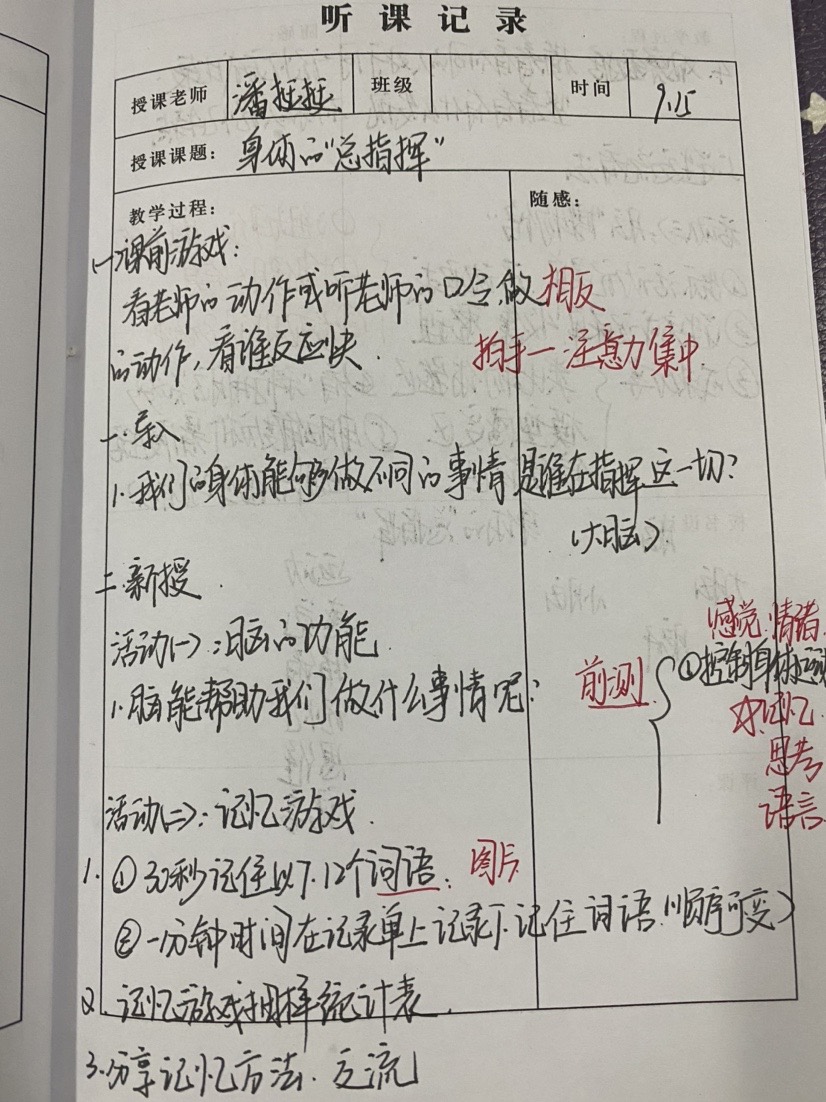 听课记录
授课老师 潘 班级 时间 9.15
授课课题： 身体的“总指挥”
教学过程： 随感：
(一)课前游戏：
看老师的动作或听老师的口令,做相反
的动作,看谁反应快.
拍手—注意力集中.
一.导入
1.我们的身体能够做不同的事情是谁在指挥这一切?
(大脑).
二.新授.
活动(一):脑的功能.
1.脑能帮助我们做什么事情呢?
前测
感觉.情绪.
①控制身体运动
记忆.
思考
语言.
活动(二):记忆游戏.
1.①30秒记住以下12个词语. 图片
②一分钟时间在记录单上记录下记住词语.(顺序可变)
2.记忆游戏抽样统计表.
3.分享记忆方法.交流